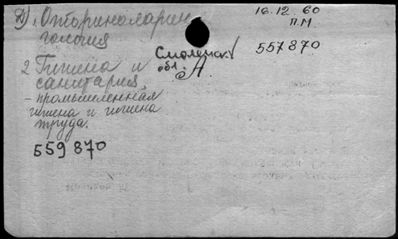 1. Оториноларин
гология
16.12.60
П.М.
557870
2. Гигиена и
санитария,
- промышленная
гигиена и гигиена
труда.
Смоленск
обл.
А.
559870